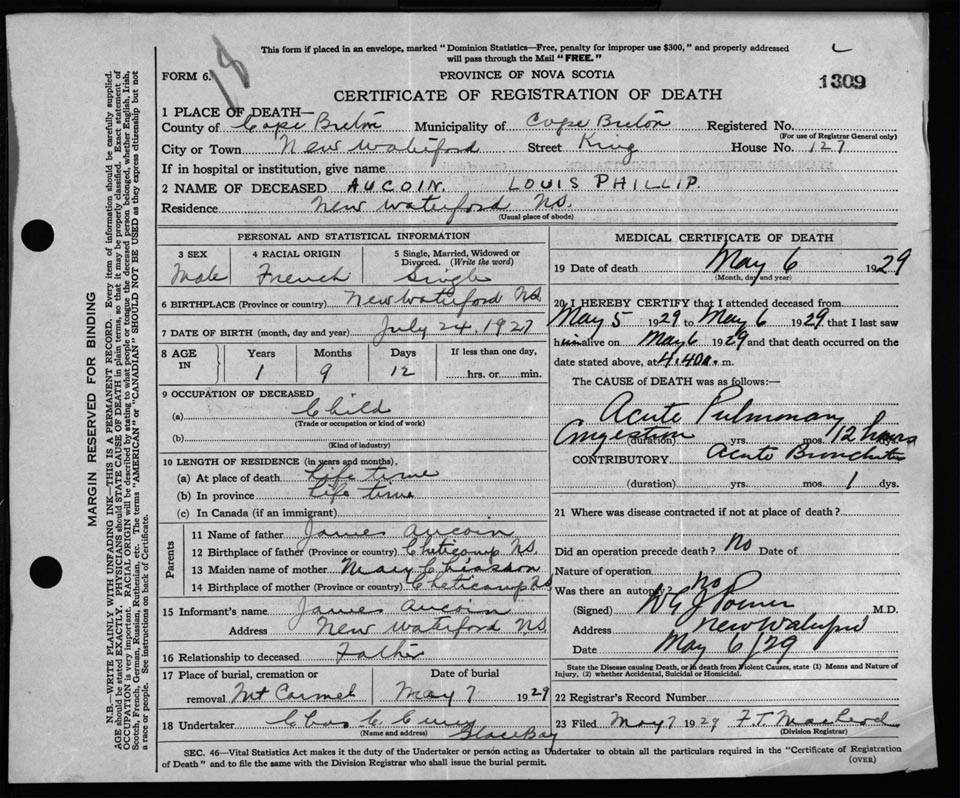 This form if placed in an envelope, marked "Dominion Statistics—Free, penalty for improper use $300," and properly addressed
will pass through the Mail "FREE."
18
FORM 6.
PROVINCE OF NOVA SCOTIA
1309
CERTIFICATE OF REGISTRATION OF DEATH
1 PLACE OF DEATH—
County of Cape Breton Municipality of Cape Breton Registered No.
(For use of Registrar General only)
City or Town New Waterford Street King House No. 127
If in hospital or institution, give name
2 NAME OF DECEASED AUCOIN. LOUIS PHILLIP.
Residence New Waterford NS.
(Usual place of abode)
PERSONAL AND STATISTICAL INFORMATION
3 SEX 4 RACIAL ORIGIN 5 Single, Married, Widowed or
Divorced. (Write the word)
Male French Single
6 BIRTHPLACE (Province or country) New Waterford NS
7 DATE OF BIRTH (month, day and year) July 24. 1927
8 AGE IN Years Months Days If less than one day,
1 9 12 hrs. or min.
9 OCCUPATION OF DECEASED
(a) Child
(Trade or occupation or kind of work)
(b)
(Kind of industry)
10 LENGTH OF RESIDENCE (in years and months),
(a) At place of death Life time
(b) In province Life time
(c) In Canada (if an immigrant)
Parents
11 Name of father James Aucoin
12 Birthplace of father (Province or country) Cheticamp NS.
13 Maiden name of mother Mary Chiasson
14 Birthplace of mother (Province or country) Cheticamp NS
15 Informant's name James Aucoin
Address New Waterford NS
16 Relationship to deceased Father
17 Place of burial, cremation or removal Mt Carmel Date of burial May 7 1929
18 Undertaker Chas C Curry
(Name and address) Glace Bay
MEDICAL CERTIFICATE OF DEATH
19 Date of death May 6 1929
(Month, day and year)
20 I HEREBY CERTIFY that I attended deceased from
May 5 1929 to May 6 1929 that I last saw
him alive on May 6 1929 and that death occurred on the
date stated above, at 4.40 a. m.
The CAUSE of DEATH was as follows:—
Acute Pulmonary
Congestion (duration) yrs. mos. 12 hours dys.
CONTRIBUTORY Acute Bronchitis
(duration) yrs. mos. 1 dys.
21 Where was disease contracted if not at place of death?
Did an operation precede death? No Date of
Nature of operation
Was there an autopsy? no
(Signed) M.D.
Address New Waterford
Date May 6/29
State the Disease causing Death, or in death from Violent Causes, state (1) Means and Nature of
Injury, (2) whether Accidental, Suicidal or Homicidal.
22 Registrar's Record Number
23 Filed May 7 1929 F.T. MacLeod
(Division Registrar)
SEC. 46—Vital Statistics Act makes it the duty of the Undertaker or person acting as Undertaker to obtain all the particulars required in the "Certificate of Registration
of Death" and to file the same with the Division Registrar who shall issue the burial permit.
(OVER)
MARGIN RESERVED FOR BINDING
N.B—WRITE PLAINLY WITH UNFADING INK—THIS IS A PERMANENT RECORD. Every item of information should be carefully supplied.
AGE should be stated EXACTLY. PHYSICIANS should STATE CAUSE OF DEATH in plain terms, so that it may be properly classified. Exact statement of
OCCUPATION is very important. RACIAL ORIGIN will be described by stating to what people or tongue the deceased person belonged, whether English, Irish,
Scotch, French, German, Russian, Ruthenian, etc. The terms "AMERICAN" or "CANADIAN" SHOULD NOT BE USED as they express citizenship but not
a race or people. See instructions on back of Certificate.